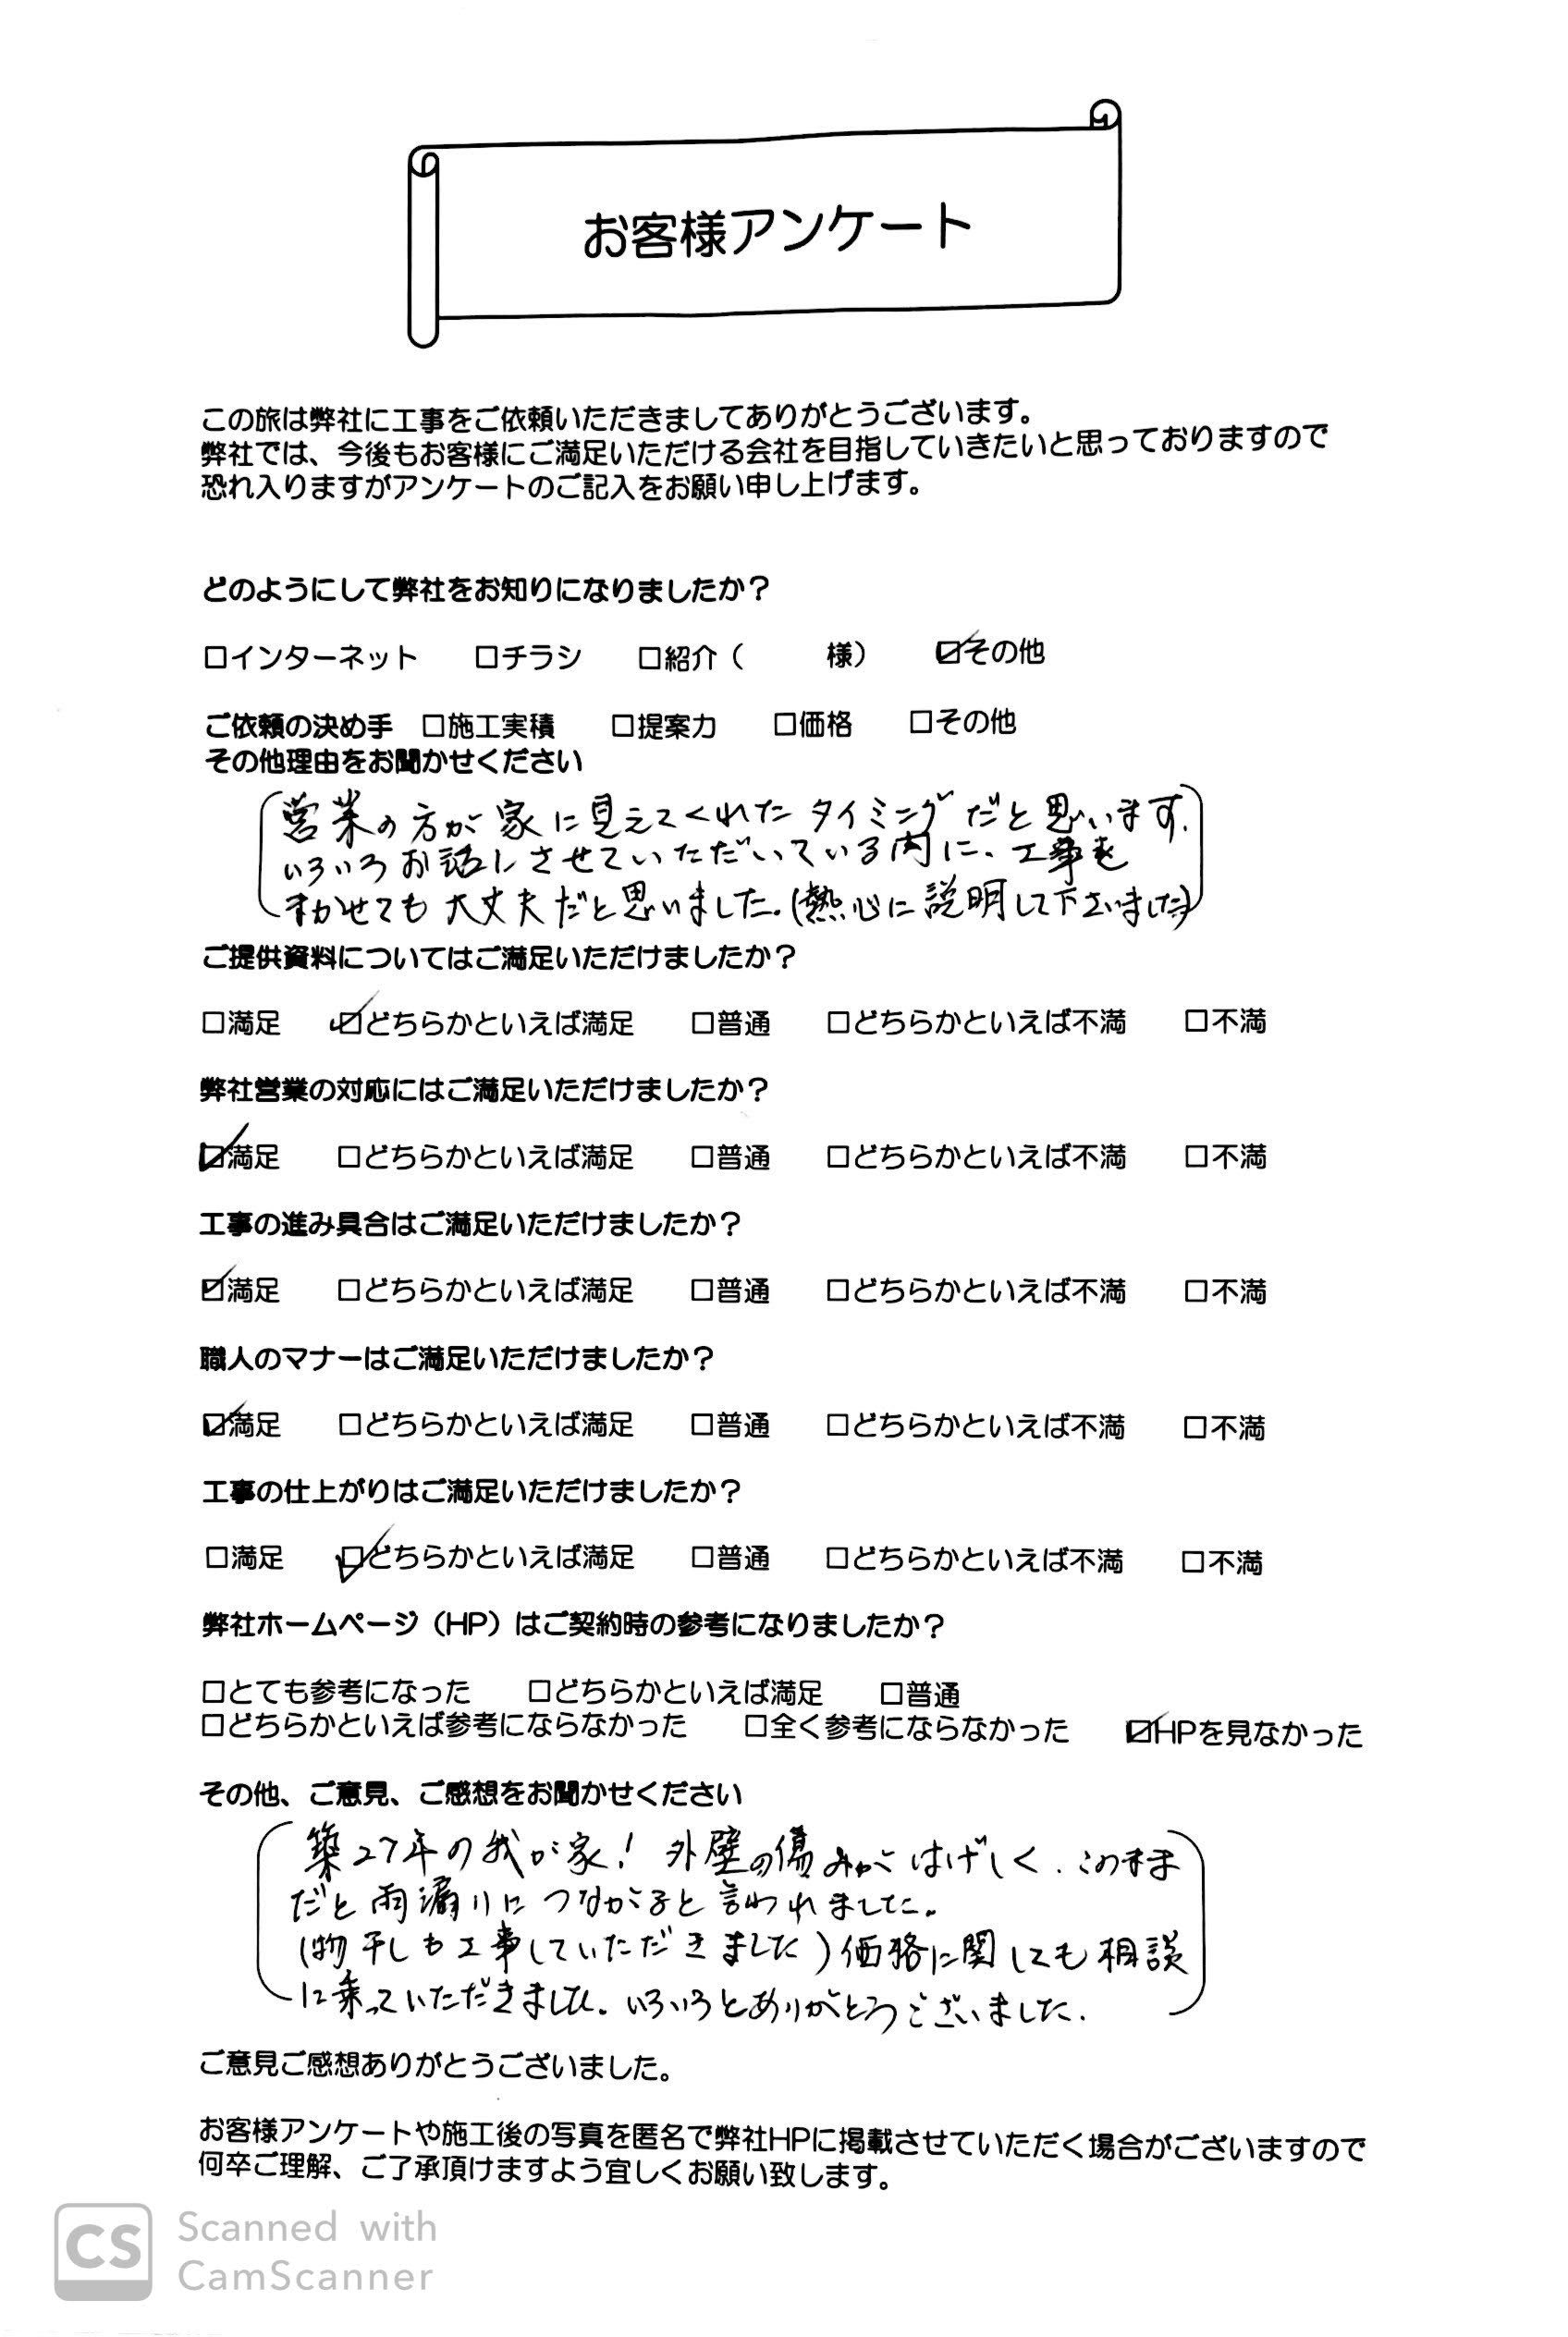 お客様アンケート
この旅は弊社に工事をご依頼いただきましてありがとうございます。
弊社では、今後もお客様にご満足いただける会社を目指していきたいと思っておりますので
恐れ入りますがアンケートのご記入をお願い申し上げます。
どのようにして弊社をお知りになりましたか？
□インターネット □チラシ □紹介（ 様） ☑その他
ご依頼の決め手 □施工実積 □提案力 □価格 □その他
その他理由をお聞かせください
営業の方が家に見えてくれたタイミングだと思います.
いろいろお話しさせていただいている内に、工事を
まかせても大丈夫だと思いました。(熱心に説明して下さいました)
ご提供資料についてはご満足いただけましたか？
□満足 ☑どちらかといえば満足 □普通 □どちらかといえば不満 □不満
弊社営業の対応にはご満足いただけましたか？
☑満足 □どちらかといえば満足 □普通 □どちらかといえば不満 □不満
工事の進み具合はご満足いただけましたか？
☑満足 □どちらかといえば満足 □普通 □どちらかといえば不満 □不満
職人のマナーはご満足いただけましたか？
☑満足 □どちらかといえば満足 □普通 □どちらかといえば不満 □不満
工事の仕上がりはご満足いただけましたか？
□満足 ☑どちらかといえば満足 □普通 □どちらかといえば不満 □不満
弊社ホームページ（HP）はご契約時の参考になりましたか？
□とても参考になった □どちらかといえば満足 □普通
□どちらかといえば参考にならなかった □全く参考にならなかった ☑HPを見なかった
その他、ご意見、ご感想をお聞かせください
築27年の我が家! 外壁の傷みがはげしく、このまま
だと雨漏りにつながると言われました。
(物干しも工事していただきました)価格に関しても相談
に乗っていただきました。いろいろとありがとうございました.
ご意見ご感想ありがとうございました。
お客様アンケートや施工後の写真を匿名で弊社HPに掲載させていただく場合がございますので
何卒ご理解、ご了承頂けますよう宜しくお願い致します。
CS Scanned with
CamScanner